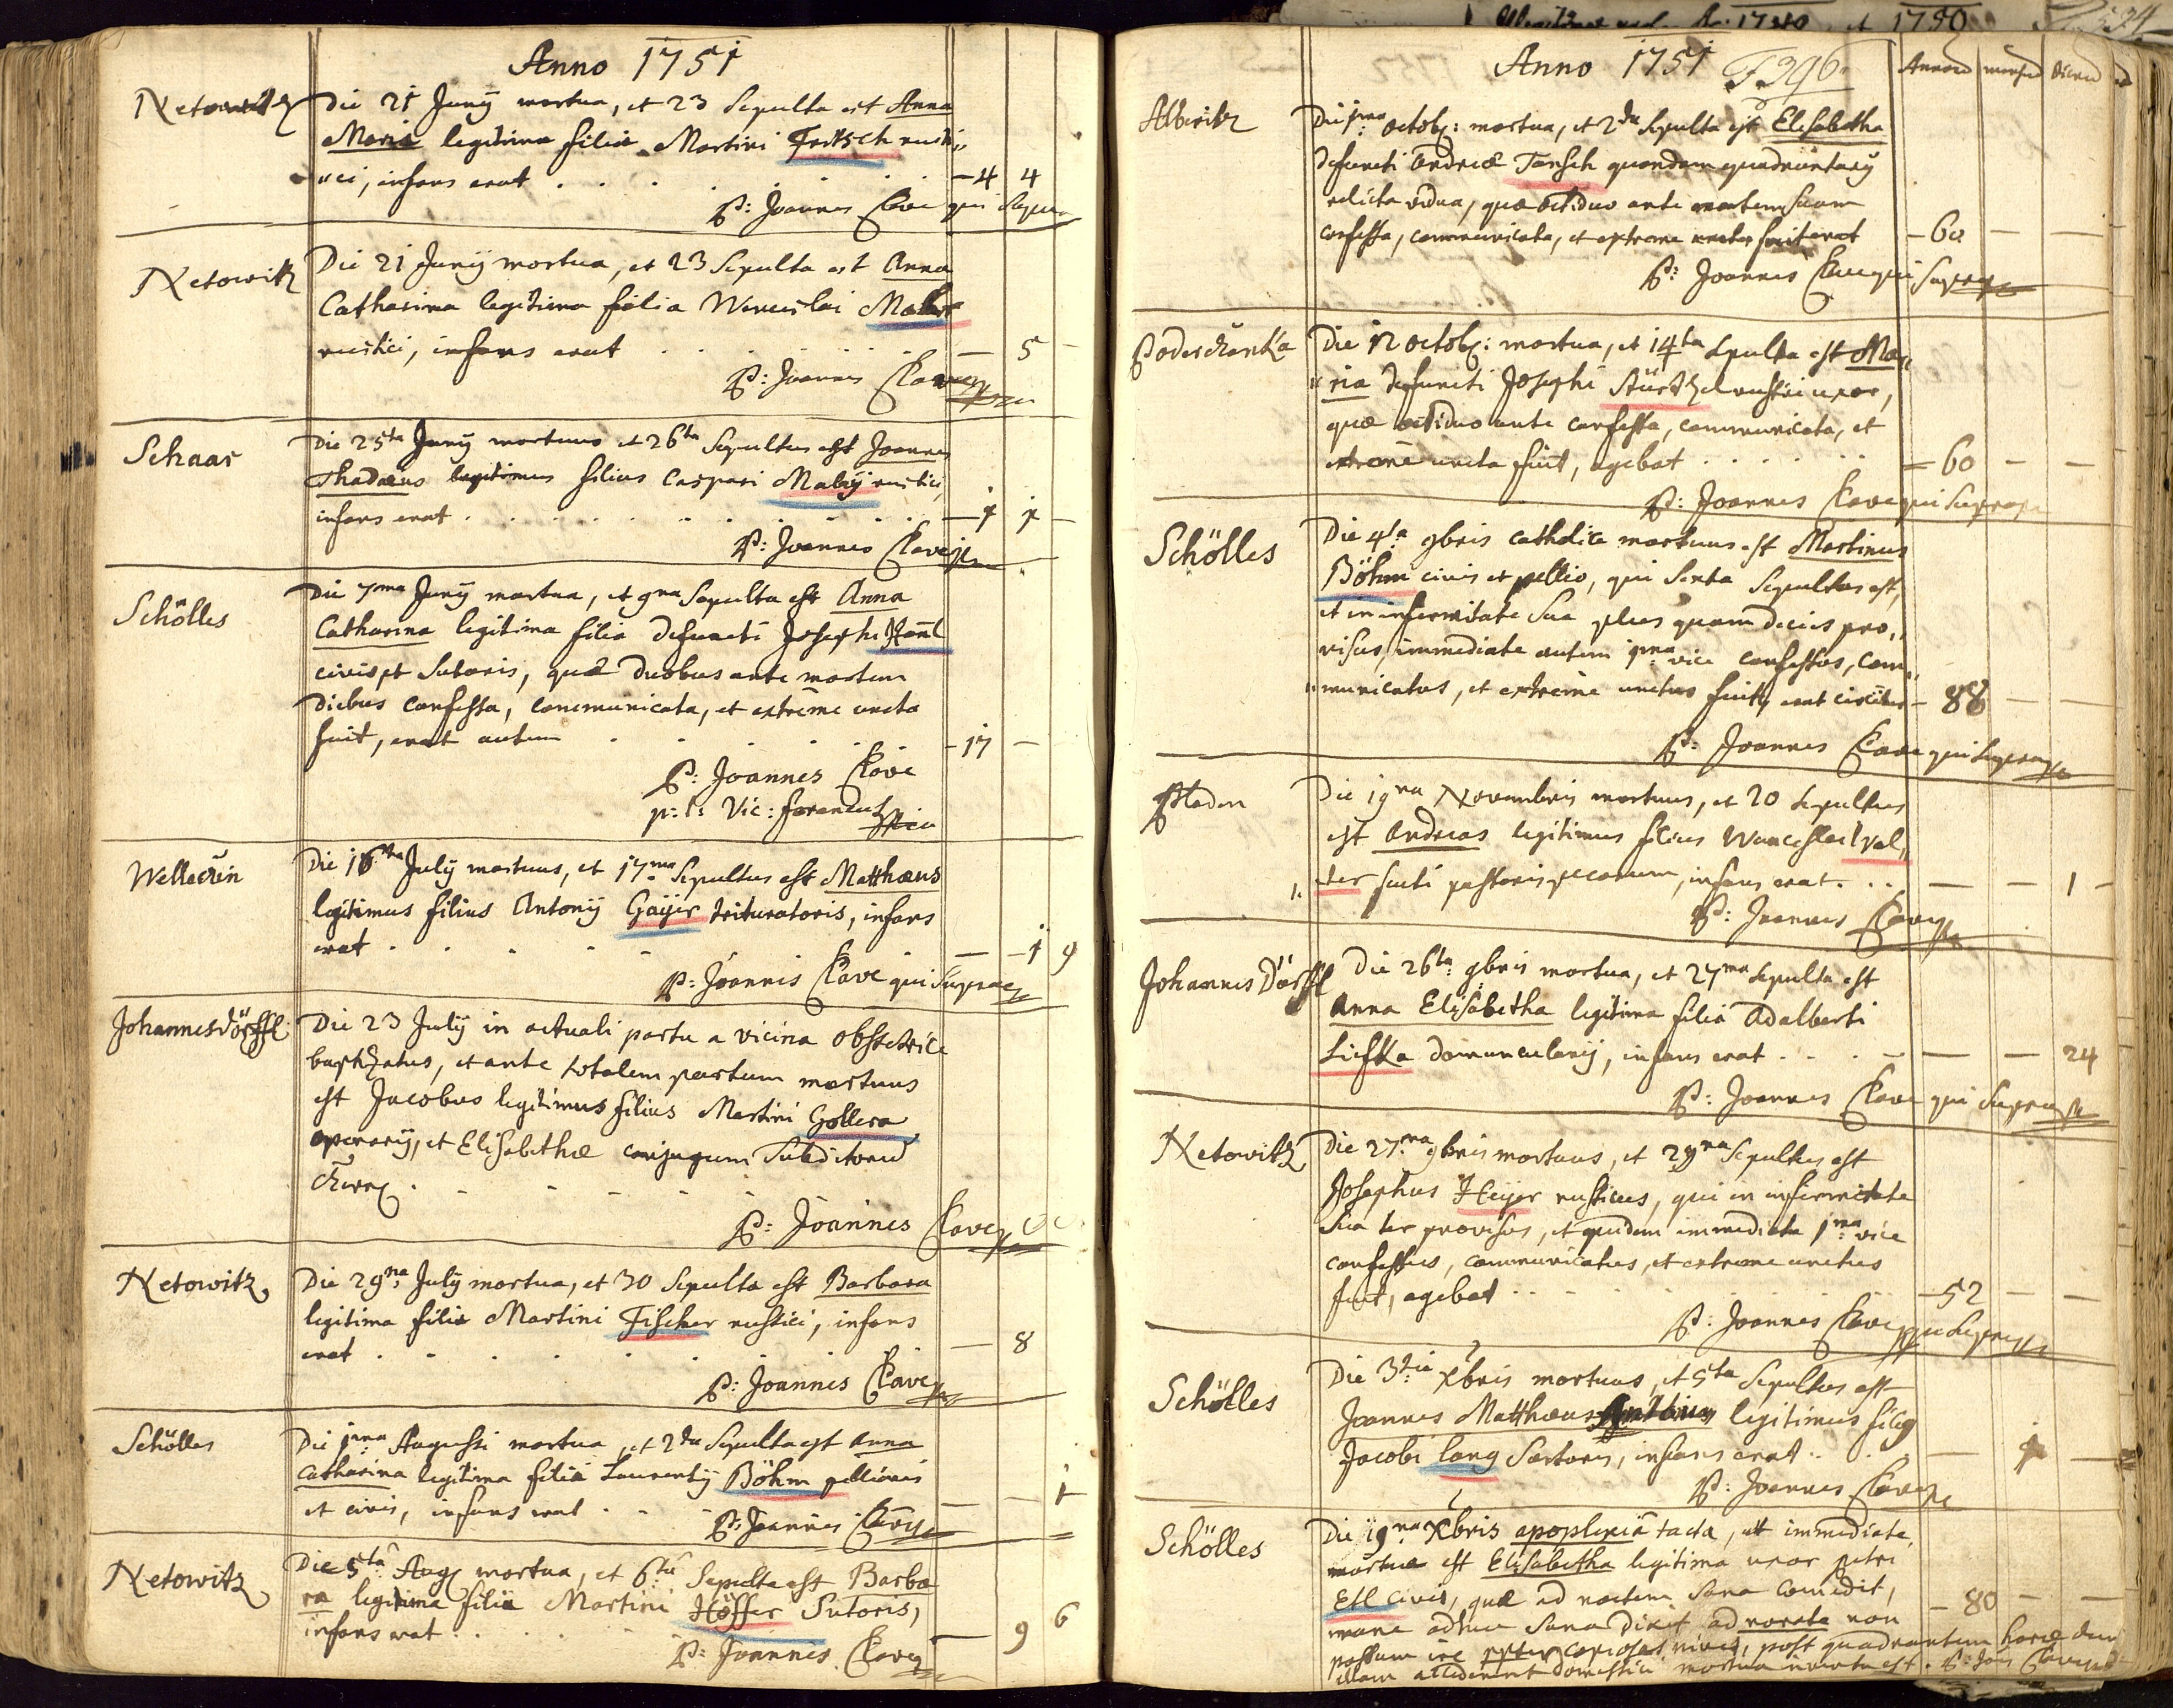 Anno 1751
Netowitz Die 21 Junÿ mortua, et 23 Sepulta est Anna
Maria legitima filia Martini Fritsch rusti„
„ci, infans erat . . . . . . — 4 4
P: Joannes Clave qui supra
Netowitz Die 21 Junÿ mortua, et 23 Sepulta est Anna
Catharina legitima filia Wenceslai
rustici, infans erat . . . . . — 5 –
P: Joannes Clave
Schaar Die 25ta Junÿ mortuus et 26ta Sepultus est Joannes
Thadaeus legitimus filius Caspari Malÿ rustici,
infans erat . . . . . . .
P: Joannes Clave
Schölles Die 7ma Junÿ mortua, et 9na Sepulta est Anna
Catharina legitima filia defuncti Josephi
civis et Sutoris, quæ duobus ante mortem
diebus confessa, communicata, et extreme uncta
fuit, erat autem . . . . . – 17 –
P: Joannes Clave
p: t: Vic: foraneus
Wellečin Die 16ta July mortuus, et 17ma Sepultus est Matthæus
legitimus filius Antonÿ Gaÿer trituratoris, infans
erat . . . . . — 1 9
P: Joannis Clave qui Supra
Johannesdörffl Die 23 Julÿ in actuali partu a vicina obstetrice
baptizatus, et ante totalem partum mortuus
est Jacobus legitimus filius Martini Gollera
operarÿ, et Elisabethæ conjugum Subditorum
. . . . .
P: Joannes Clave
Netowitz Die 29na Julÿ mortua, et 30 Sepulta est Barbara
legitima filia Martini Fischer rustici, infans
erat . . . . . . . — 8
P: Joannes Clave
Schölles Die 1ma Augusti mortua, et 2da Sepulta est Anna
Catharina legitima filia Laurentÿ Böhm pellionis
et civis, infans erat . . . — — 1
P: Joannes Clave
Netowitz Die 5ta Aug mortua, et 6ta Sepulta est Barba
ra legitima filia Martini Höffer Sutoris,
infans erat . . . . . — 9 6
P: Joannes Clave
Anno 1751 F 296 Annorum mensium dierum
Die 1ma octob: mortua, et 2da Sepulta est Elisabetha
defuncti Andreæ Tansch quondam quadrantarÿ
relicta vidua, quæ octiduo ante mortem suam
confessa, communicata, et extreme uncta fuit erat – 60 — —
P: Joannes Clave qui Supra
Poderschanka Die 12 octob: mortua, et 14ta Sepulta est Ma„
„ria defuncti Josephi Stürtzl rustici uxor,
quæ octiduo ante confessa, communicata, et
extreme uncta fuit, agebat . . . . . – 60 – –
P: Joannes Clave qui Supra
Schölles Die 4ta 9bris catholice mortuus est Martinus
Böhm civis et pellio, qui Sexta Sepultus est,
et in infirmitate Sua plus quam decies pro„
visus, immediate autem 1ma vice confessus, com„
„municatus, et extreme unctus fuit, erat circiter – 88 — —
P: Joannes Clave qui Supra
Pladen Die 19na Novembris mortuus, et 20 Sepultus
est Andreas legitimus filius Wenceslai Wal„
„ter pastoris pecorum, infans erat . . . — — 1 –
P: Joannes Clave
Johannes Dörffl Die 26ta 9bris mortua, et 27ma Sepulta est
Anna Elisabetha legitima filia Adalberti
Lischka domuncularÿ, infans erat . . . — — 24
P: Joannes Clave qui Supra
Netowitz Die 27ma 9bris mortuus, et 29na Sepultus est
Josephus Heÿer rusticus, qui in infirmitate
Sua ter provisus, et quidem immediate 1ma vice
confessus, communicatus, et extreme unctus
fuit, agebat . . . . . – 52 – –
P: Joannes Clave qui Supra
Schölles Die 3tia Xbris mortuus, et 5ta Sepultus est
Joannes Matthæus Antonius legitimus filius
Jacobi Lang Sartoris, infans erat . . .
P: Joannes Clave
Schölles Die 19na Xbris apoplexia tacta, et immediate
mortua est Elisabetha legitima uxor Petri
Etl civis, quæ ad noctem Sana comedit,
mane adhuc Sana dixit, ad rorate non – 80 — —
possum ire propter copiosas nives, post quadrantem horæ dum
illam accederent domestici mortua inventa est. P: Joan Clave